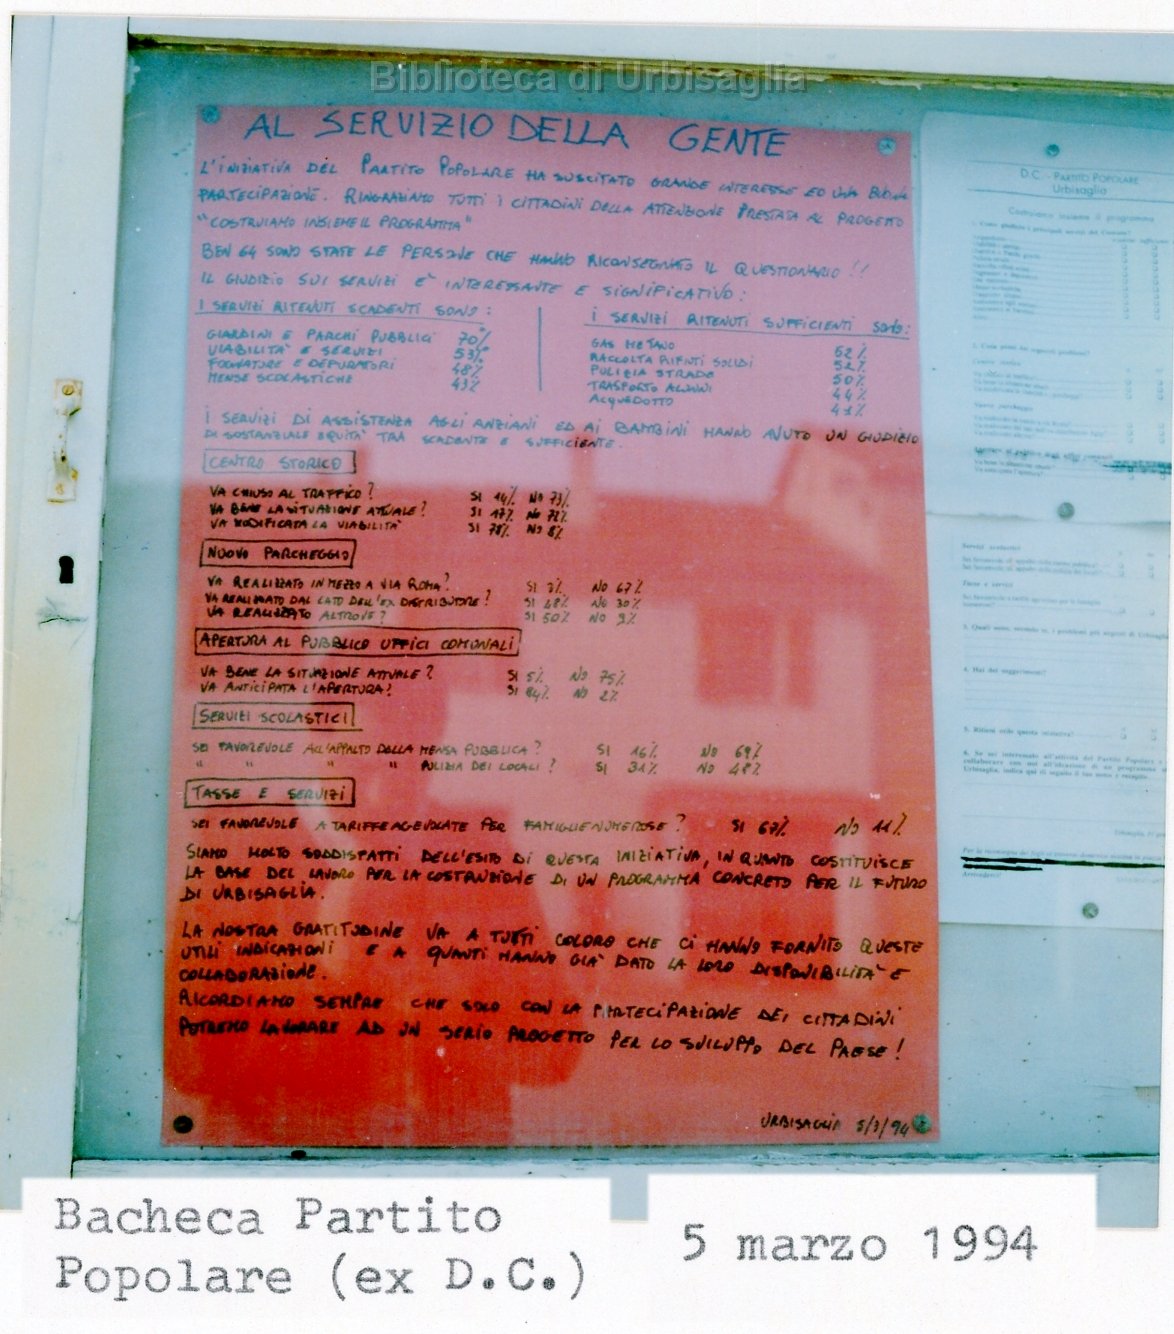 Biblioteca di Urbisaglia
AL SERVIZIO DELLA GENTE
L'INIZIATIVA DEL PARTITO POPOLARE HA SUSCITATO GRANDE INTERESSE ED UNA BUONA
PARTECIPAZIONE. RINGRAZIAMO TUTTI I CITTADINI DELLA ATTENZIONE PRESTATA AL PROGETTO
"COSTRUIAMO INSIEME IL PROGRAMMA"
BEN 64 SONO STATE LE PERSONE CHE HANNO RICONSEGNATO IL QUESTIONARIO!!
IL GIUDIZIO SUI SERVIZI E' INTERESSANTE E SIGNIFICATIVO:
I SERVIZI RITENUTI SCADENTI SONO:
GIARDINI E PARCHI PUBBLICI 70%
VIABILITA' E SERVIZI 53%
FOGNATURE E DEPURATORI 48%
MENSE SCOLASTICHE 43%
I SERVIZI RITENUTI SUFFICIENTI SONO:
GAS METANO 62%
RACCOLTA RIFIUTI SOLIDI 52%
PULIZIA STRADE 50%
TRASPORTO ALUNNI 44%
ACQUEDOTTO 41%
I SERVIZI DI ASSISTENZA AGLI ANZIANI ED AI BAMBINI HANNO AVUTO UN GIUDIZIO
DI SOSTANZIALE EQUITA' TRA SCADENTE E SUFFICIENTE.
CENTRO STORICO
VA CHIUSO AL TRAFFICO? SI 14% NO 73%
VA BENE LA SITUAZIONE ATTUALE? SI 17% NO 72%
VA MODIFICATA LA VIABILITA' SI 78% NO 8%
NUOVO PARCHEGGIO
VA REALIZZATO IN MEZZO A VIA ROMA? SI 3% NO 67%
VA REALIZZATO DAL LATO DELL'EX DISTRIBUTORE? SI 48% NO 30%
VA REALIZZATO ALTROVE? SI 50% NO 9%
APERTURA AL PUBBLICO UFFICI COMUNALI
VA BENE LA SITUAZIONE ATTUALE? SI 5% NO 75%
VA ANTICIPATA L'APERTURA? SI 84% NO 2%
SERVIZI SCOLASTICI
SEI FAVOREVOLE ALL'APPALTO DELLA MENSA PUBBLICA? SI 16% NO 69%
" " " " PULIZIA DEI LOCALI? SI 31% NO 48%
TASSE E SERVIZI
SEI FAVOREVOLE A TARIFFE AGEVOLATE PER FAMIGLIE NUMEROSE? SI 67% NO 11%
SIAMO MOLTO SODDISFATTI DELL'ESITO DI QUESTA INIZIATIVA, IN QUANTO COSTITUISCE
LA BASE DEL LAVORO PER LA COSTRUZIONE DI UN PROGRAMMA CONCRETO PER IL FUTURO
DI URBISAGLIA.
LA NOSTRA GRATITUDINE VA A TUTTI COLORO CHE CI HANNO FORNITO QUESTE
UTILI INDICAZIONI E A QUANTI HANNO GIA' DATO LA LORO DISPONIBILITA' E
COLLABORAZIONE.
RICORDIAMO SEMPRE CHE SOLO CON LA PARTECIPAZIONE DEI CITTADINI
POTREMO LAVORARE AD UN SERIO PROGETTO PER LO SVILUPPO DEL PAESE!
URBISAGLIA 5/3/94
D.C. - PARTITO POPOLARE
Urbisaglia
Costruiamo insieme il programma
4. Hai dei suggerimenti?
5. Ritieni utile questa iniziativa?
6. Se sei interessato all'attività del Partito Popolare
Bacheca Partito
Popolare (ex D.C.)
5 marzo 1994